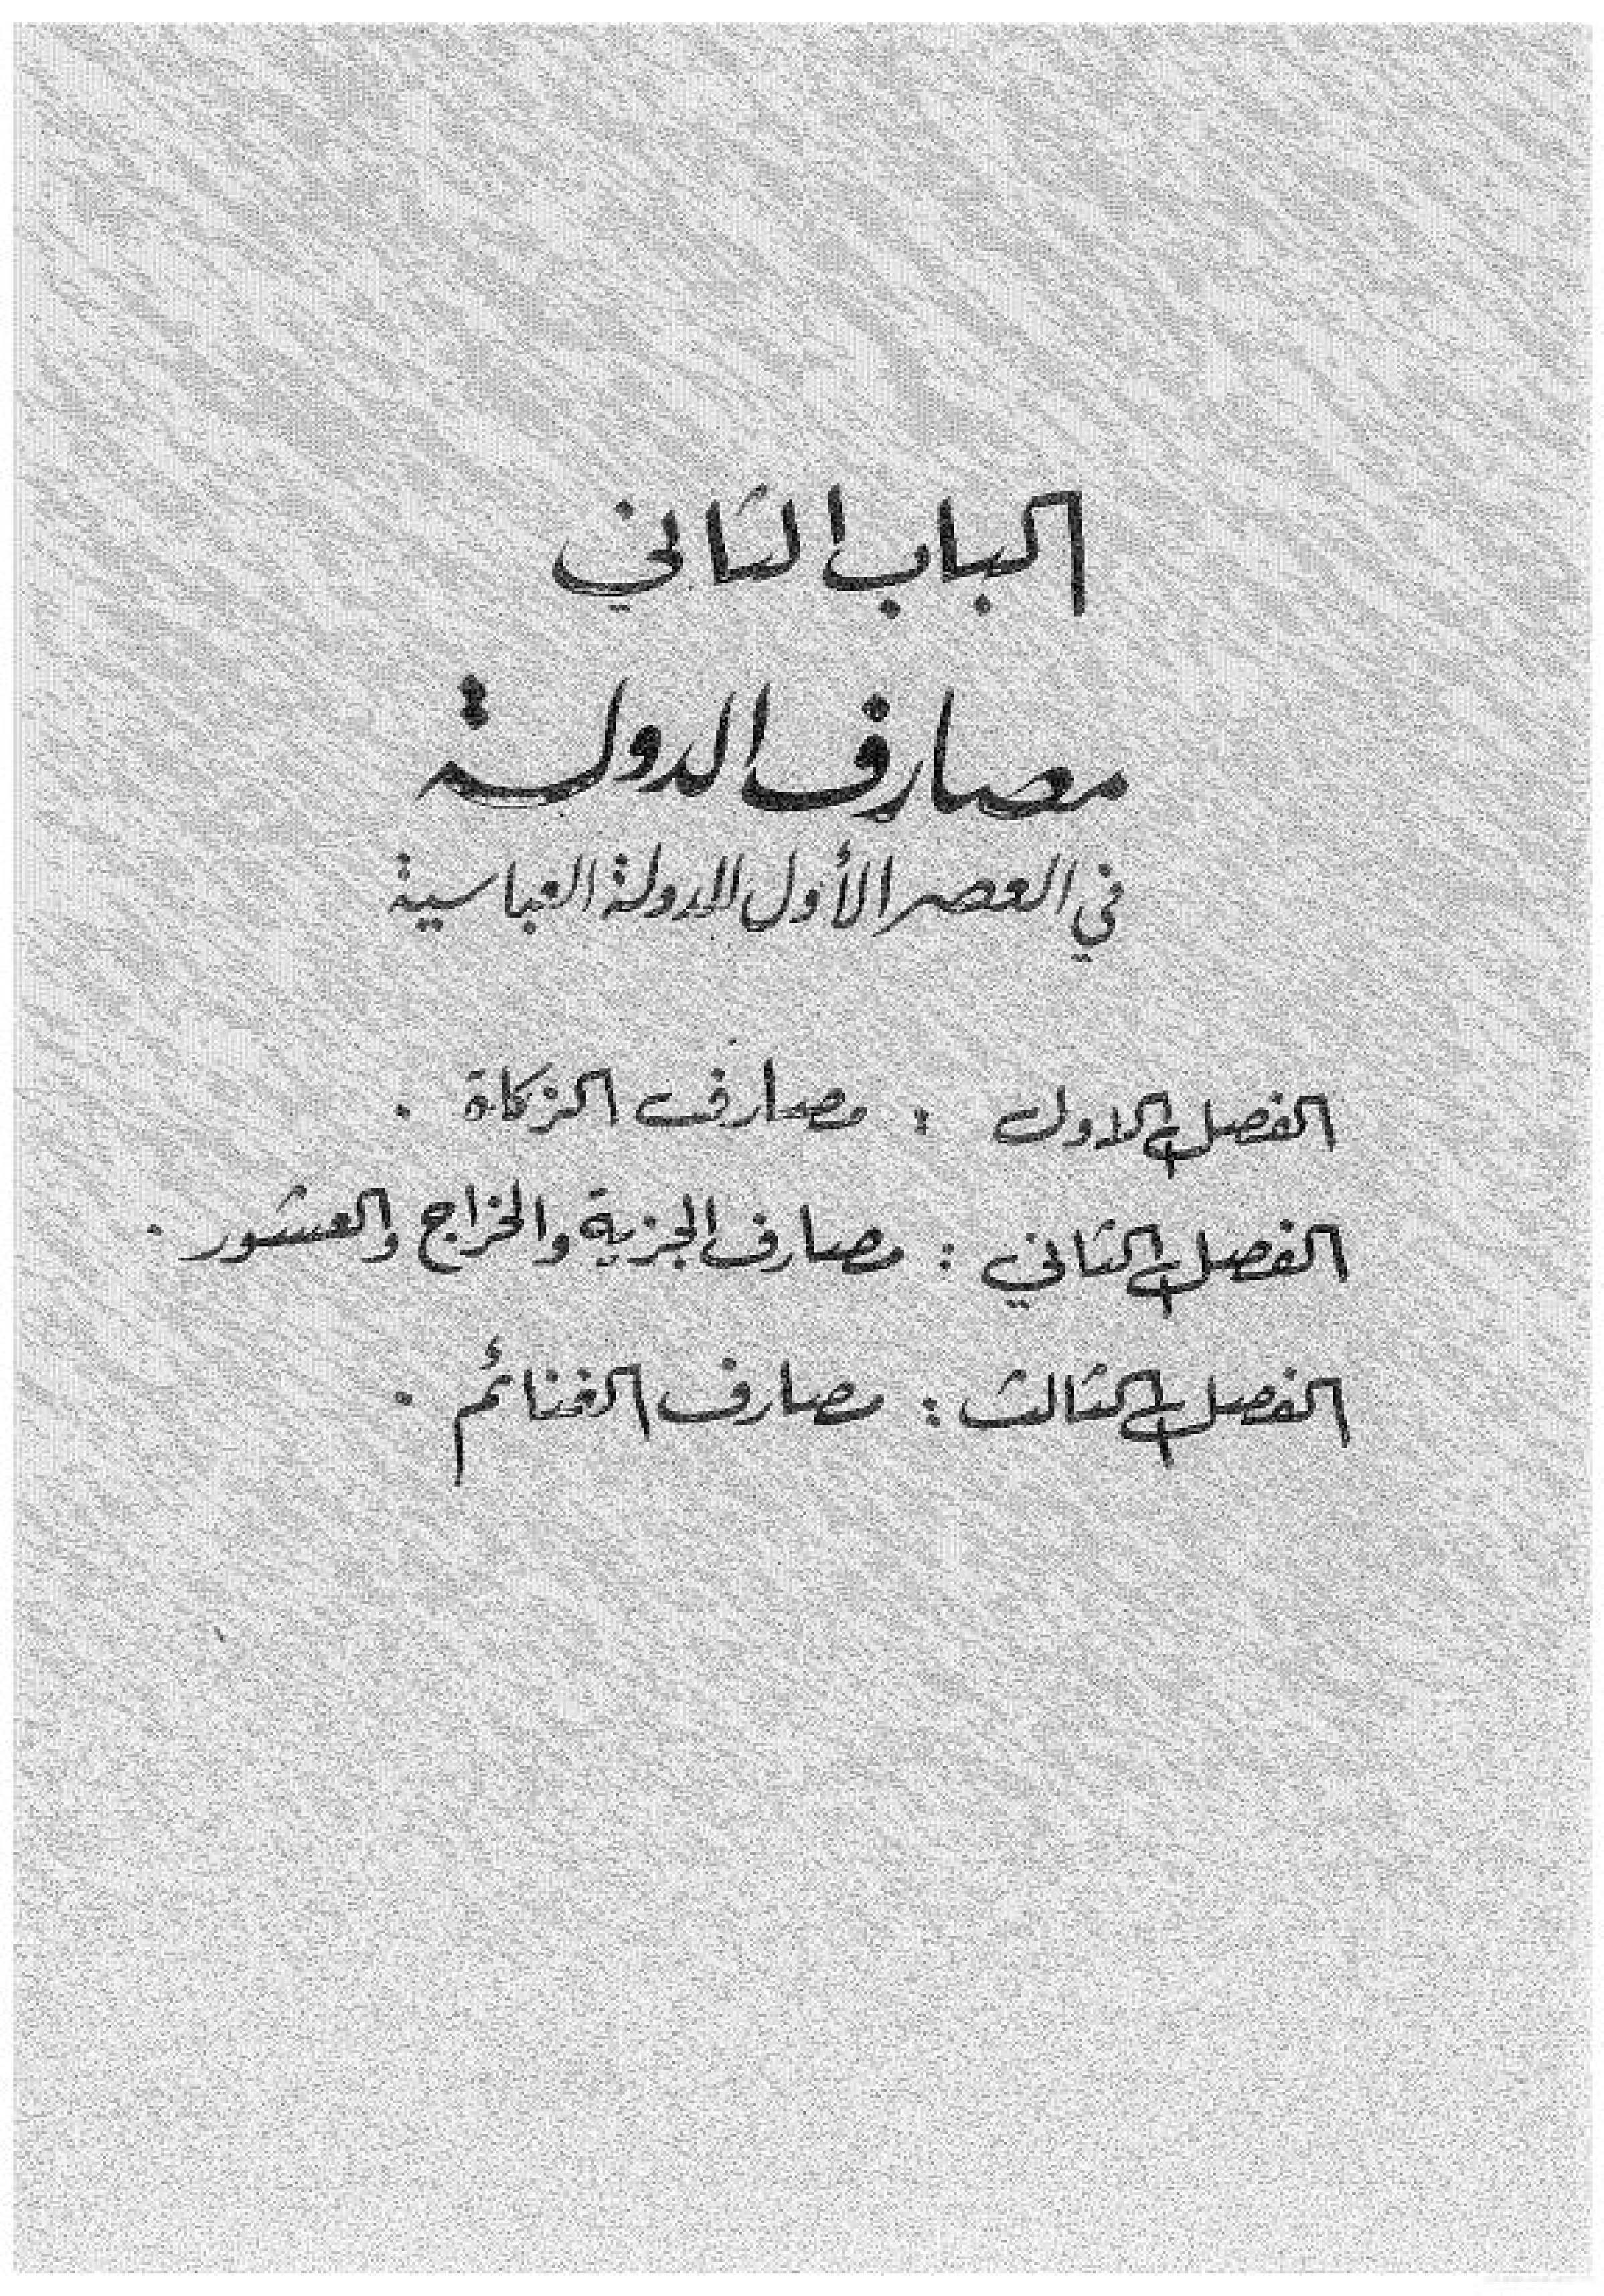 الباب الثاني
مصارف الدولة
في العصر الأول للدولة العباسية
الفصل الاول : مصارف الزكاة .
الفصل الثاني : مصارف الجزية والخراج والعشور .
الفصل الثالث : مصارف الغنائم .